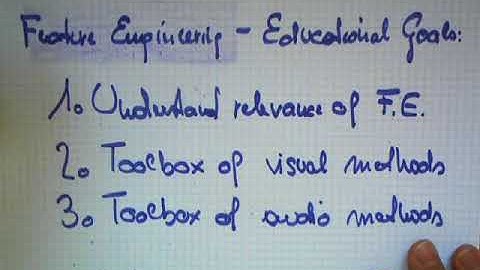 Feature Engineering - Educational Goals:
1. Understand relevance of F.E.
2. Toolbox of visual methods
3. Toolbox of audio methods